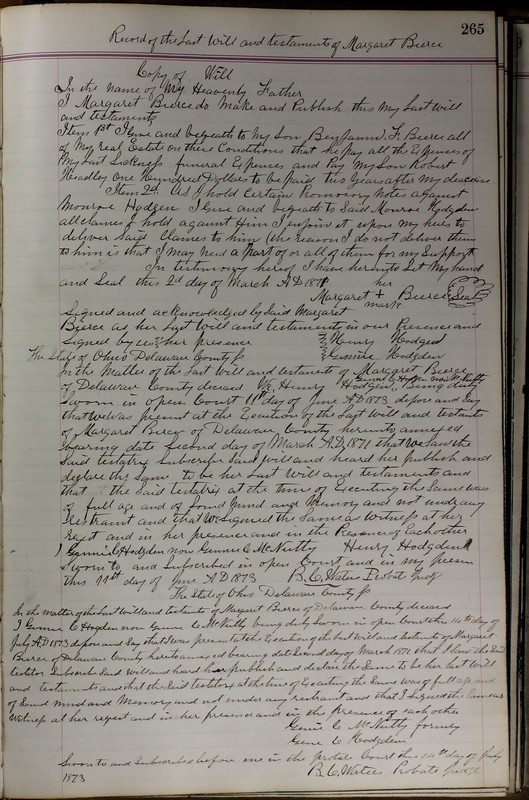 265
Record of the Last Will and testaments of Margaret Bierce
Copy of Will
In the name of My Heavenly Father
I Margaret Bierce do Make and Publish this My Last Will
and testaments
Item 1st I Give and beqeath to My Son Benjamin F. Bierce all
of My real Estate on these Conditions that he pay all the Expenses of
My Last Sickness funeral Expenses and Pay My Son Robert
Headley One Hundred Dollars to be paid two Years after My decease
Item 2d As I hold Certain Promisory Notes against
Monroe Hodgen I Give and beqeath to Said Monroe Hodgden
all claims I hold against Him I enjoin it upon My heirs to
deliver Said Claims to him (the reason I do not deliver them
to him is that I May Need a Part of or all of them for My Support
In testimony hereof I have hereunto Set My hand
and Seal this 2d day of March AD 1871
her
Margaret + Bierce Seal
mark
Signed and acknowledged by Said Margaret
Bierce as her Last Will and testaments in our Presence and
Signed by us in her presence Henry Hodgen
Hodgden
The State of Ohio Delaware County Ss
In the Matter of the Last Will and testments of Margaret Bierce
of Delaware County deceased We Henry Hodgden, Being duly
Sworn in open Court 11th day of June AD 1873, depose and Say
that We was present at the Execution of the Last Will and testments
of Margaret Bierce of Delaware County hereunto annexed
bearing date Second day of March A.D. 1871 that We Saw the
Said testatrix Subscribe Said Will and heard her publish and
declare the Same to be her Last Will and testaments and
that the Said testatrix at the time of Executing the Same was
of full age and of Sound Mind and Memory and not under any
restraint and that We Signed the Same as Witness at her
reqest and in her presence and in the Presence of Each other
C Hodgden now C McNutty Henry Hodgden
Sworn to and Subscribed in open Court and in my presence
this 11th day of June AD 1873 B. C. Waters Probate Judge
The State of Ohio Delaware County Ss
In the matter of the Last Will and testments of Margaret Bierce of Delaware County deceased
I C Hogden now C McNutty being duly Sworn in open Court this 14th day of
July AD 1873 depose and Say that I was present at the Execution of the Last Will and testments of Margaret
Bierce of Delaware County hereto annexed bearing date Second day of March 1871 that I Saw the Said
testator Subscribe Said Will and heard her publish and declare the Same to be her Last Will
and testments and that the Said testator at the time of Executing the Same was of full age and
of Sound Mind and Memory and not under any restraint and that I Signed the Same as
Witness at her reqest and in her presence and in the presence of each other
C McNutty formerly
C Hodgden
Sworn to and Subscribed before me in the Probate Court this 14th day of July
1873 B. C. Waters Probate Judge